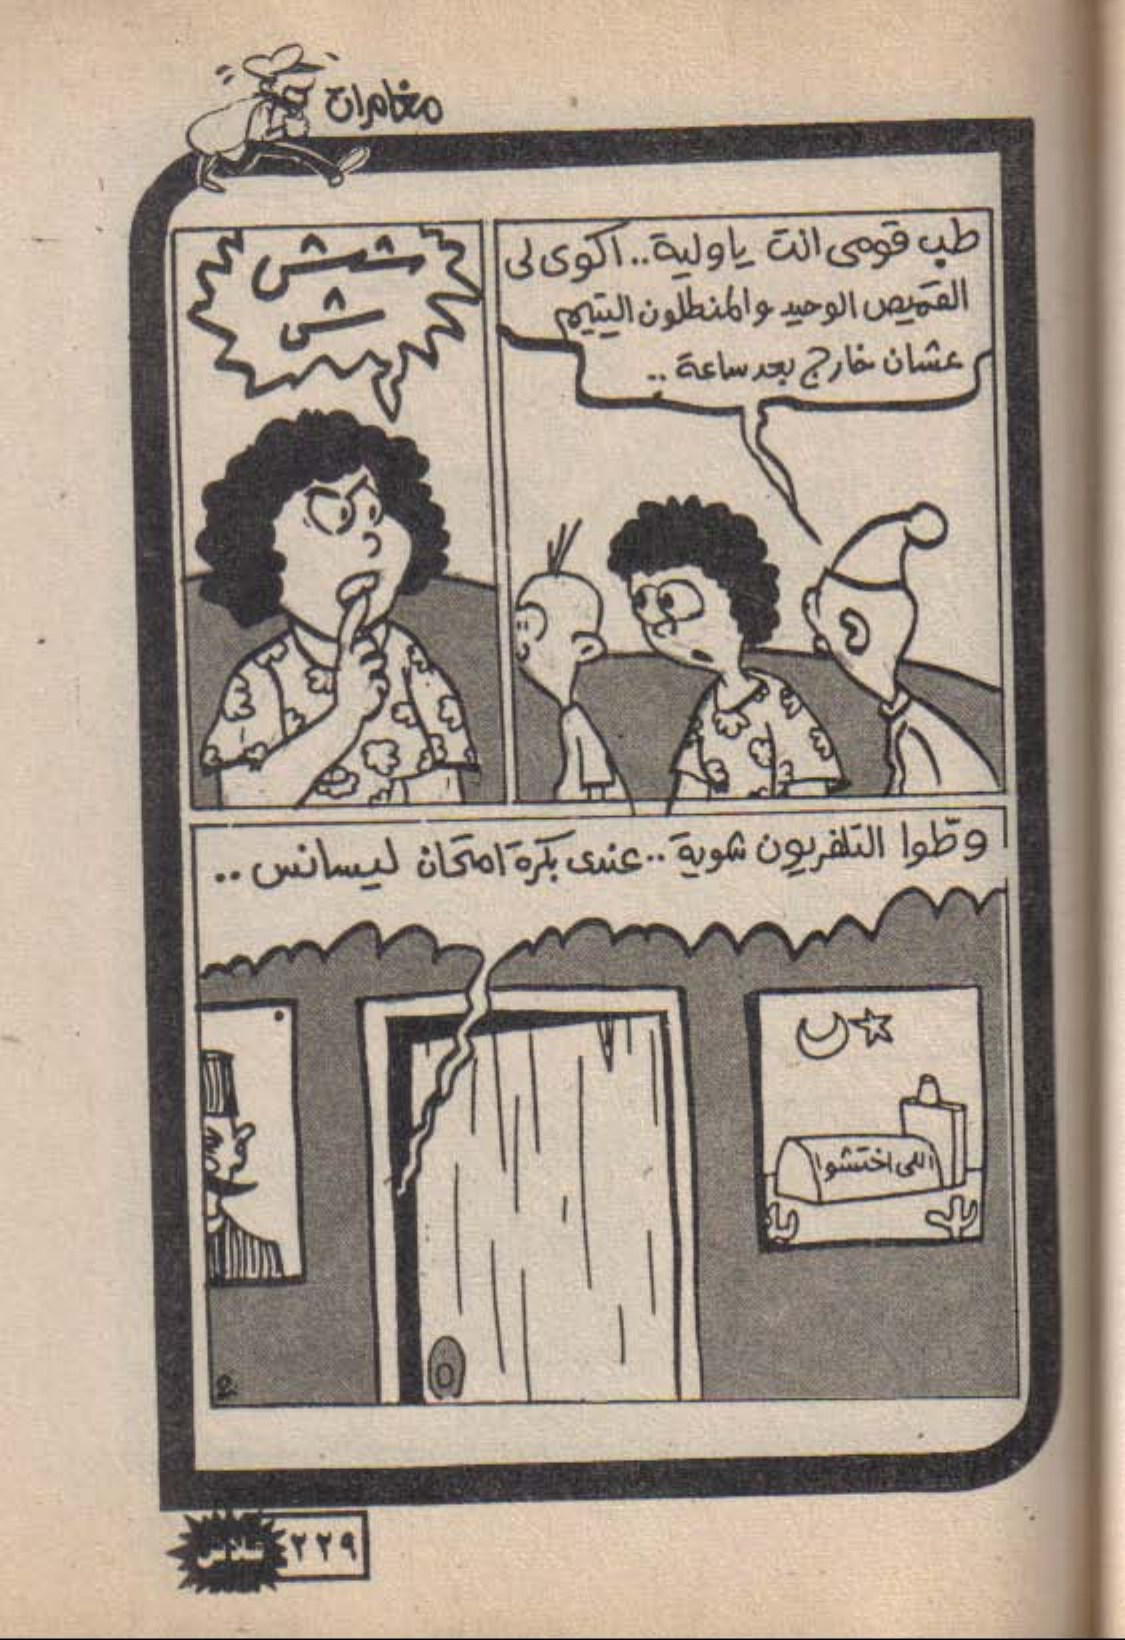 مغامرات
طب قومى انت ياولية.. اكوى لى
القميص الوحيد والمنطلون اليتيم
عشان خارج بعد ساعة..
شش
ش
وطّوا التلفزيون شوية.. عندى بكرة امتحان ليسانس..
اللى اختشوا
٢٢٩
فلاش